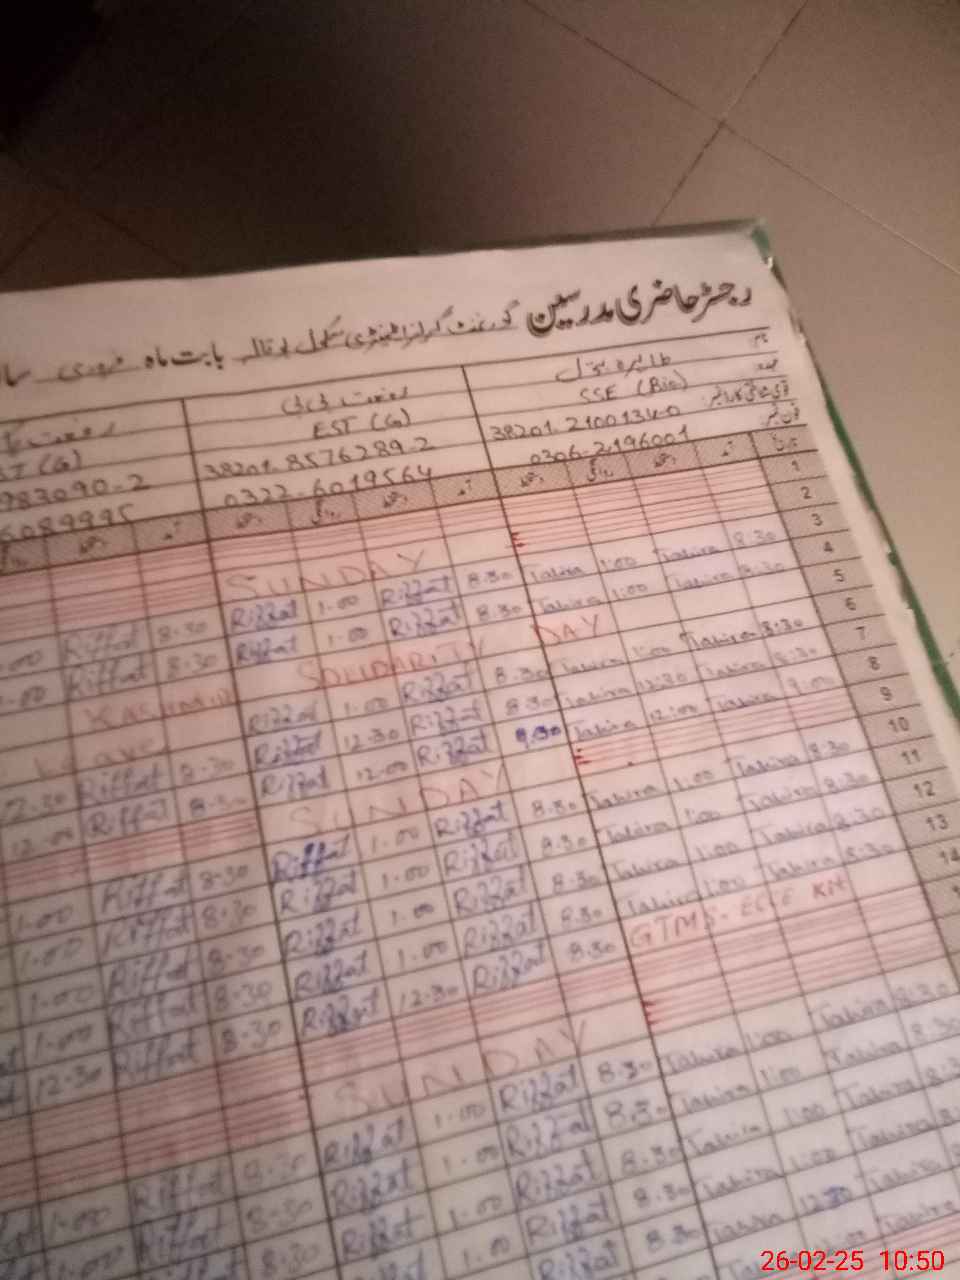 رجسٹر حاضری مدرسین گورنمنٹ گرلز ایلیمنٹری سکول بابت ماہ فروری
نام
عہدہ
قومی شناختی کارڈ نمبر
فون نمبر
طاہرہ بتول
SSE (Bio)
38201 21001340
0306-2196001
رفعت بی بی
EST (G)
38201-8576289-2
0322-6019564
رفعت
ST (G)
983090-2
6089995
1
2 SUNDAY
3 8:30 Tahira 1:00 Tahira 8:30 Riffat 1:00 Riffat 8:30 Riffat 1:00
4 8:30 Tahira 1:00 Tahira 8:30 Riffat 1:00 Riffat 8:30 Riffat 1:00
5 KASHMIR SOLIDARITY DAY
6 8:30 Tahira 1:00 Tahira 8:30 Riffat 1:00 Riffat Leave
7 8:30 Tahira 12:30 Tahira 8:30 Riffat 12:30 Riffat 8:30 Riffat 12:30
8 9:00 Tahira 12:00 Tahira 9:30 Riffat 12:00 Riffat 8:30 Riffat 12:00
9 SUNDAY
10 8:30 Tahira 1:00 Tahira 8:30 Riffat 1:00 Riffat 8:30 Riffat 1:00
11 8:30 Tahira 1:00 Tahira 8:30 Riffat 1:00 Riffat 8:30 Riffat 1:00
12 8:30 Tahira 1:00 Tahira 8:30 Riffat 1:00 Riffat 8:30 Riffat 1:00
13 8:30 Tahira 1:00 Tahira 8:30 Riffat 1:00 Riffat 8:30 Riffat 1:00
14 GTMS-ECCE Kit 8:30 Riffat 12:30 Riffat 8:30 Riffat 12:30
SUNDAY
8:30 Tahira 1:00 Tahira 8:30 Riffat 1:00 Riffat 8:30 Riffat 1:00
8:30 Tahira 1:00 Tahira 8:30 Riffat 1:00 Riffat 8:30 Riffat
Tahira 1:00 Tahira 8:30 Riffat 1:00 Riffat 8:30
Tahira 1:00 Tahira 8:30 Riffat
Tahira 12:30 Tahira 8:30
26-02-25 10:50